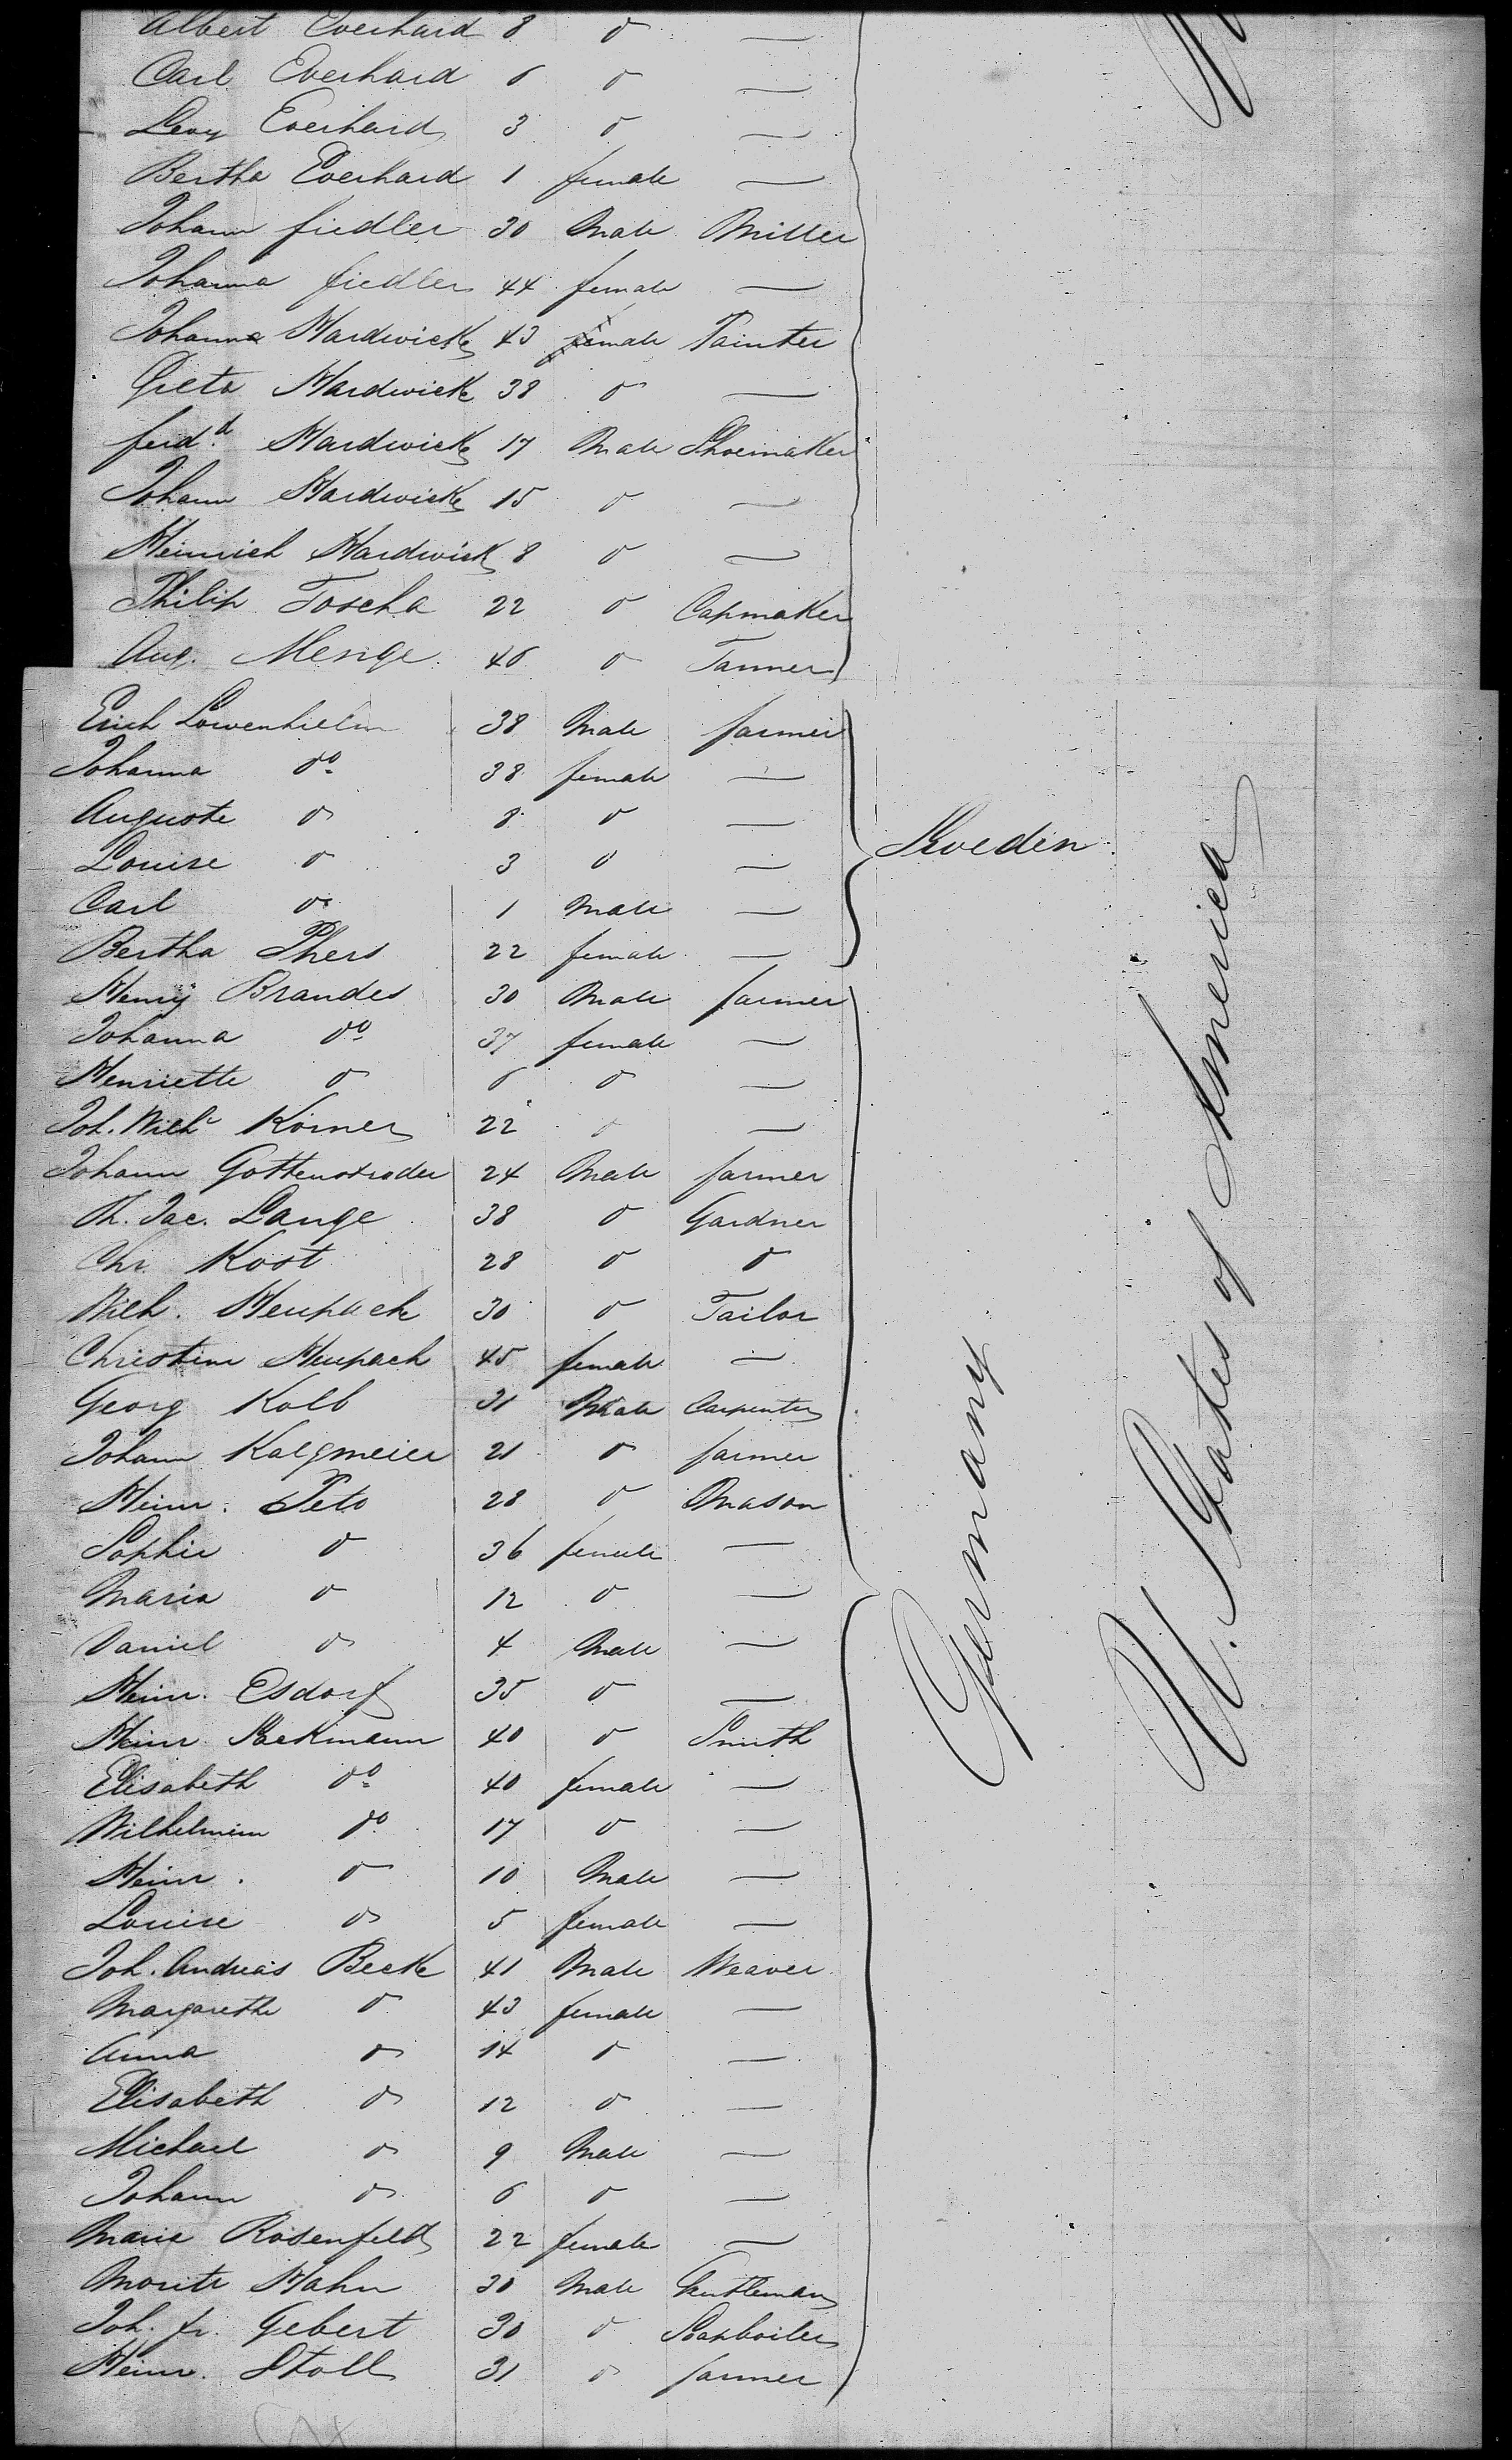 Albert Everhard 8 do —
Carl Everhard 6 do —
Levy Everhard 3 do —
Bertha Everhard 1 female —
Johann fiedler 30 Male Miller
Johanna fiedler 44 female —
Johanna Hardwick 43 female Painter
Greta Hardwick 38 do —
ferdd. Hardwick 17 Male Shoemaker
Johann Hardwick 15 do —
Heinrich Hardwick 8 do —
Philip Toscha 22 do Capmaker
Aug. Menge 46 do Tanner
Erich Lowenhielm 38 Male farmer
Johanna do 38 female —
Auguste do 8 do —
Louise do 3 do —
Sweden
Carl do 1 Male —
Bertha Phers 22 female —
Henry Brandes 30 Male farmer
Johanna do 37 female —
Henriette do 6 do —
Joh. Wilh Körner 22 do —
Johann Gottenstrader 24 Male farmer
Jac. Lange 38 do Gardner
Chr. Kost 28 do do
Wilh. Heupach 30 do Tailor
Christine Heupach 45 female —
Georg Kolb 31 Male Carpenter
Johann Kalgmeier 21 do farmer
Heinr. Peto 28 do Mason
Sophie do 36 female —
Maria do 12 do —
Daniel do 4 Male —
Heinr. Esdorf 35 do —
Heinr. Backmann 40 do Smith
Elisabeth do 40 female —
Wilhelmine do 17 do —
Heinr. do 10 Male —
Louise do 5 female —
Joh. Andreas Beck 41 Male Weaver
Margarethe do 43 female —
Anna do 14 do —
Elisabeth do 12 do —
Michael do 9 Male —
Johann do 6 do —
Marie Rosenfeldt 22 female —
Moritz Hahn 30 Male Gentleman
Joh. fr. Gebert 30 do Soapboiler
Heinr. Stoll 31 do farmer
Germany
U. States of America